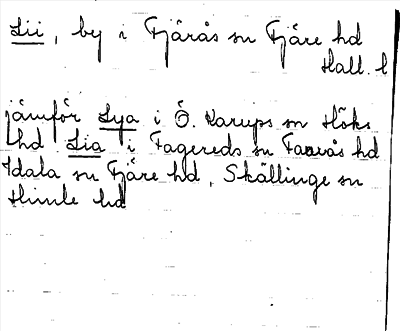 Lii, by i Fjärås sn Fjäre hd
Hall. l
jämför Lya i Ö. Karups sn Höks
hd Lia i Fagereds sn Faurås hd
Idala sn Fjäre hd, Skällinge sn
Himle hd